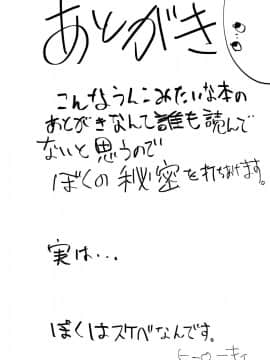 あとがき
こんなうんこみたいな本の
あとがきなんて誰も読んで
ないと思うので
ぼくの秘密を打ちあけます。
実は...
ぼくはスケベなんです。